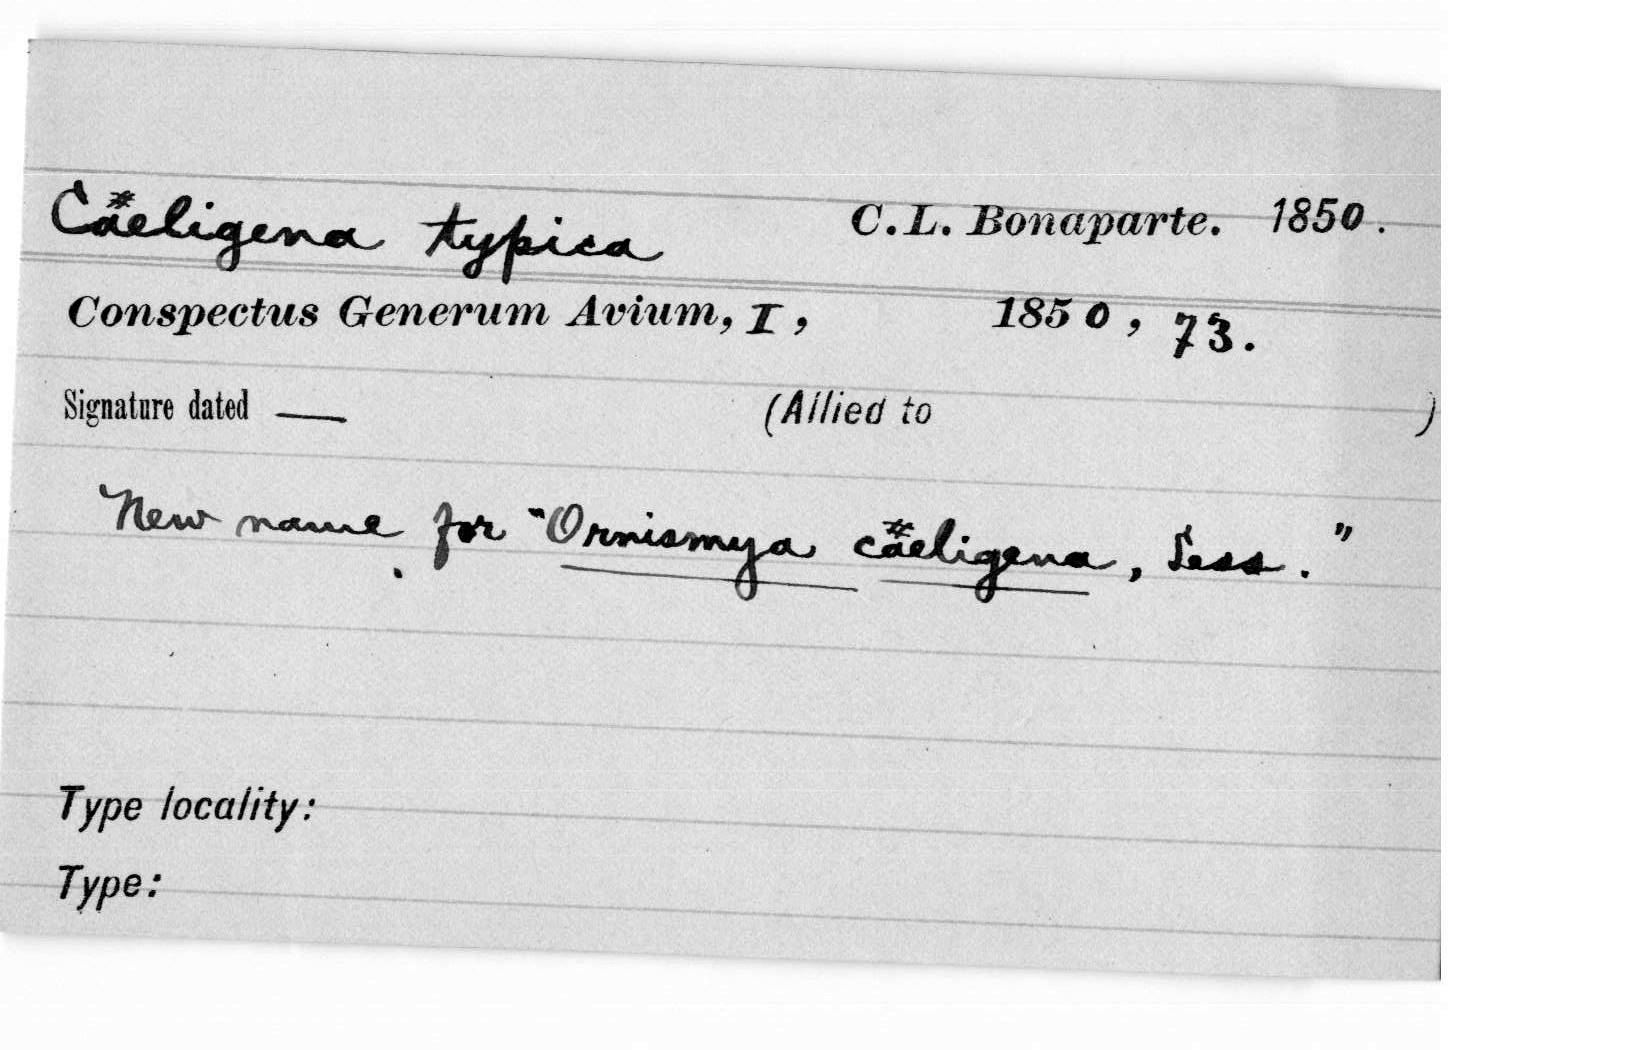 Cäeligena typica C.L. Bonaparte. 1850.
Conspectus Generum Avium, I, 1850, 73.
Signature dated — (Allied to )
New name for "Ornismya cäeligena, Less."
Type locality:
Type: